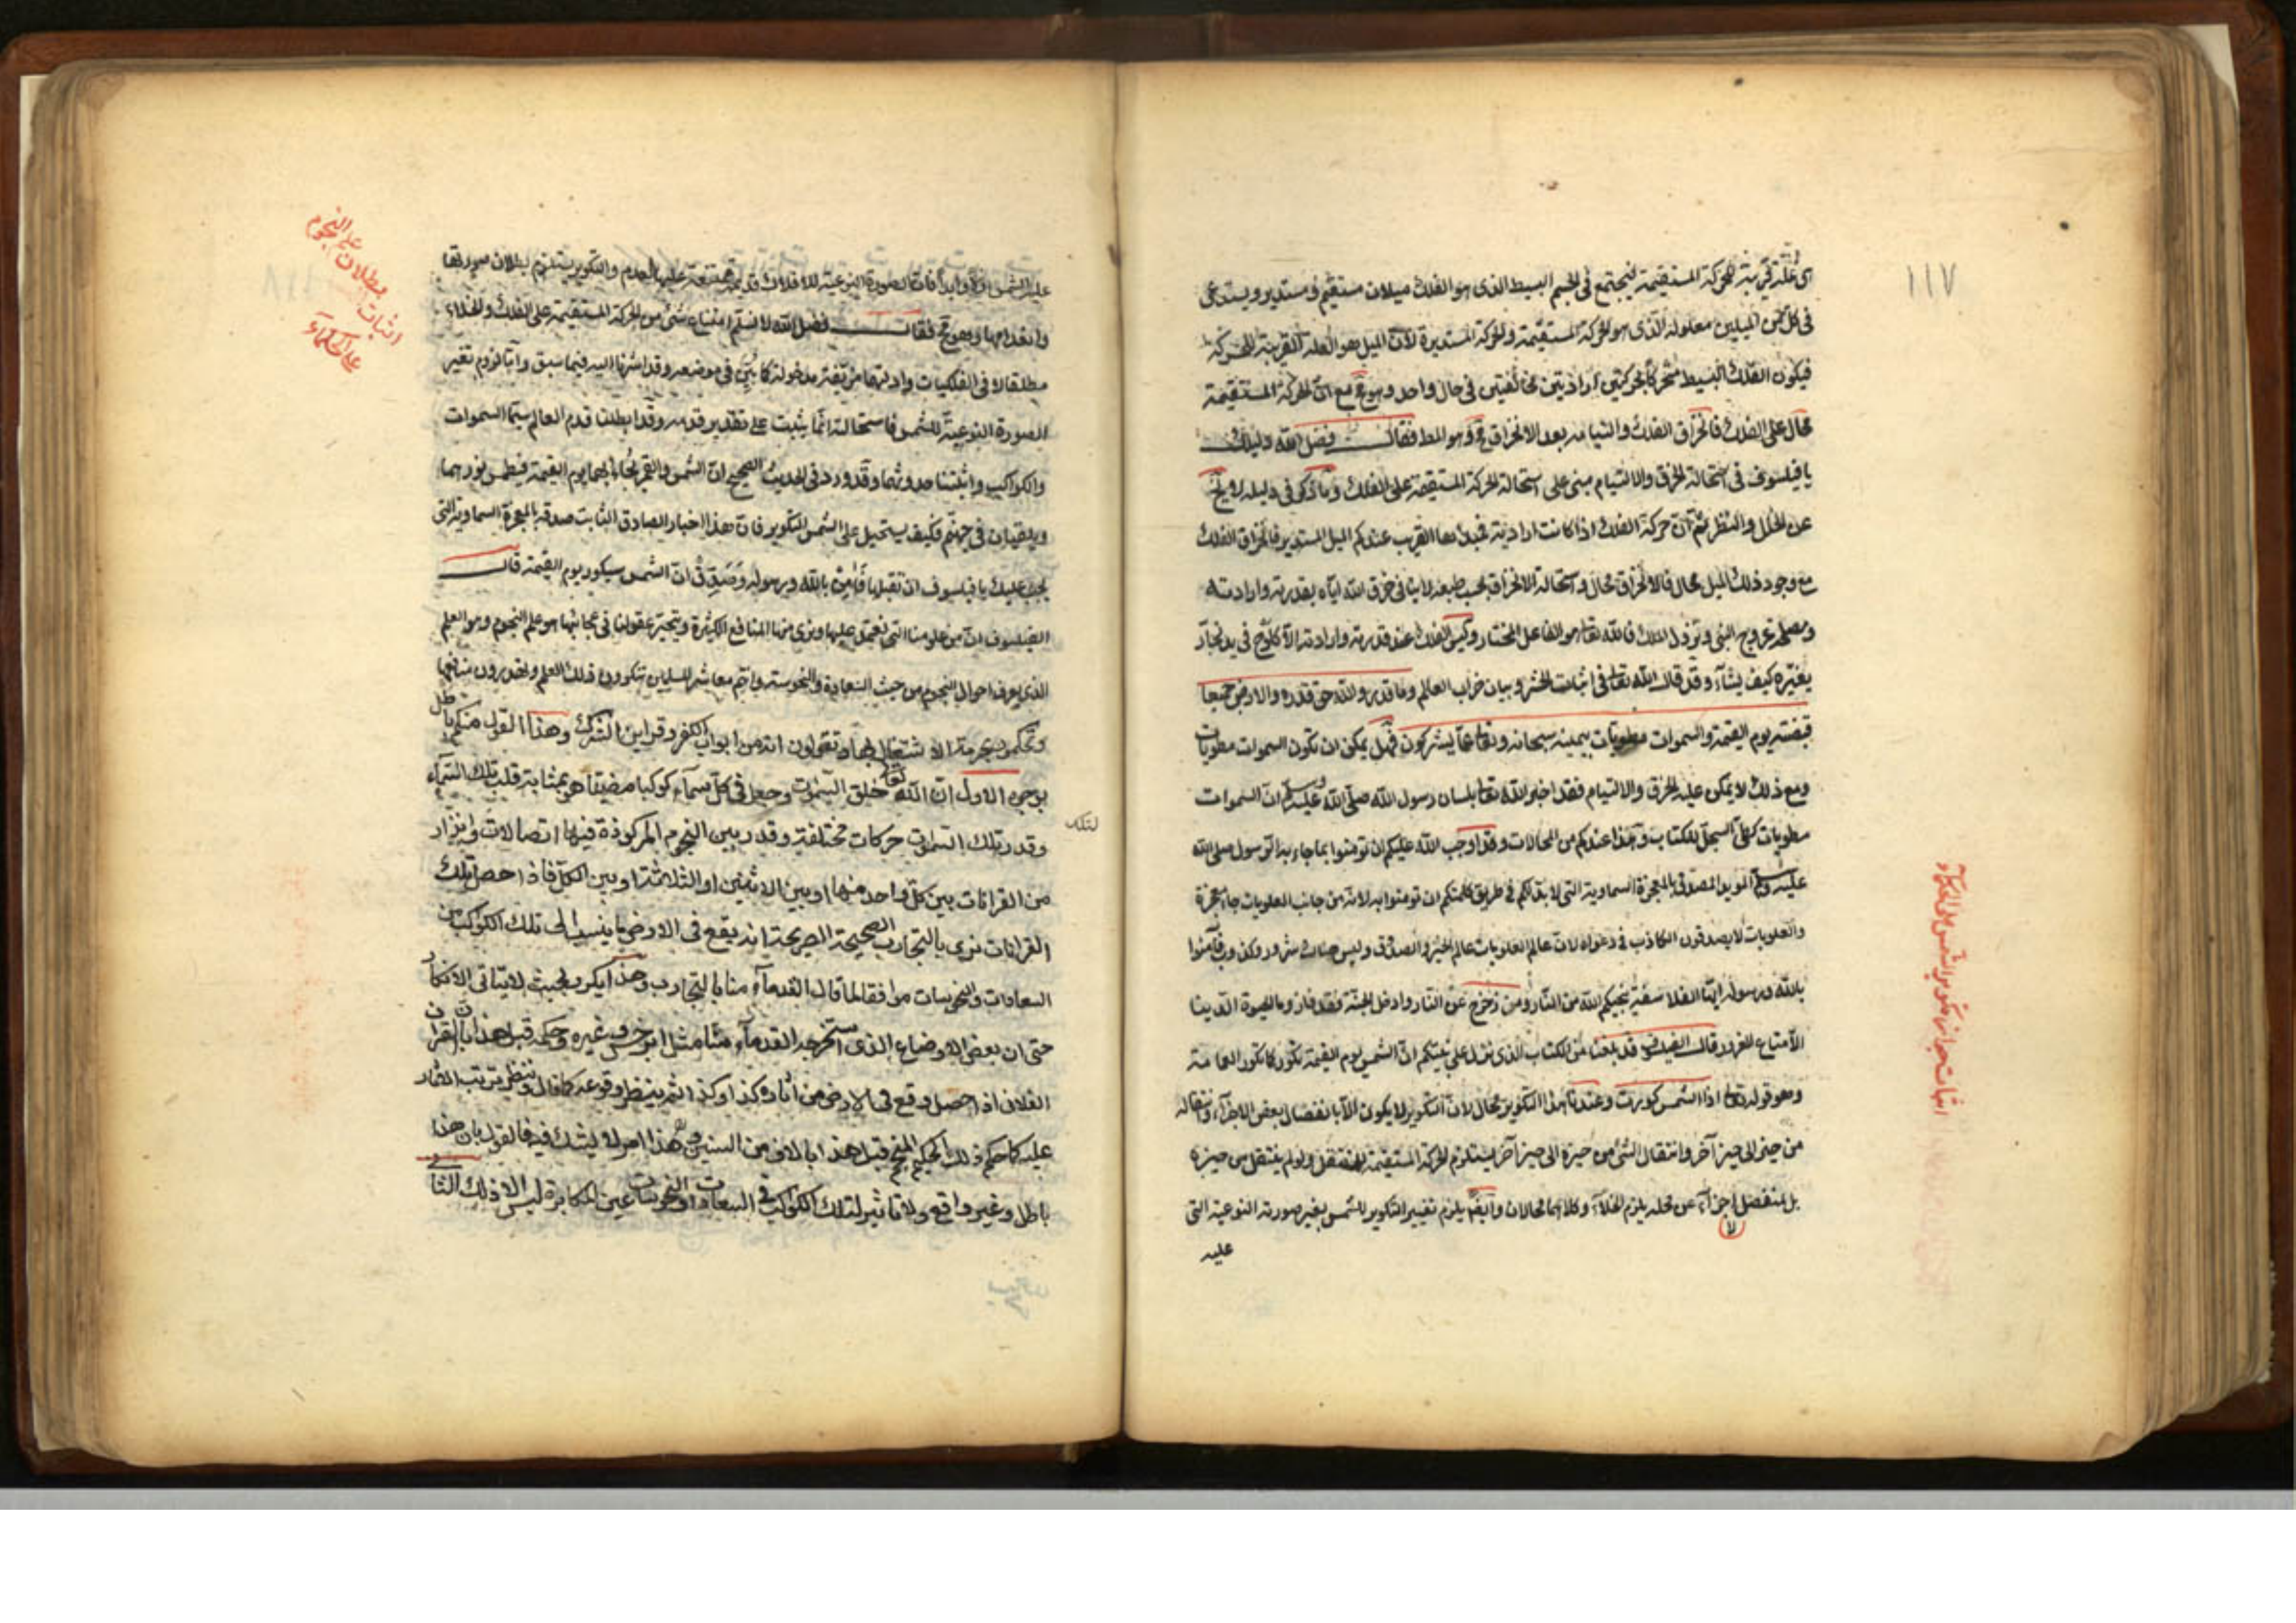 ١١٧
اى علة قريبة للحركة المستقيمة فيجتمع فى الجسم البسيط الذى هو الفلك ميلان مستقيم ومستدير ويستدعى
فى كل من الميلين معلوله الذى هو الحركة المستقيمة والحركة المستديرة لان الميل هو العلة القريبة للحركة
فيكون الفلك البسيط متحركا بحركتين اراديتين مخالفتين فى حال واحد وهو مح مع ان الحركة المستقيمة
محال على الفلك فانخراق الفلك والتيامه بعد الانخراق مح وهو المط فقال فضل الله دليلك
يا فيلسوف فى استحالة الخرق والالتيام مبنى على استحالة الحركة المستقيمة على الفلك وما ذكر فى دليله لا يخ
عن الخلل والنظر ثم ان حركة الفلك اذا كانت ارادية فمبدئها القريب عندكم الميل المستدير فانخراق الفلك
مع وجود ذلك الميل محال فالانخراق محال واستحالة الانخراق بحسب طبعه لا ينافى خرق الله اياه بقدرته وارادته
ومصلحة عروج النبى ونزول الملك فالله تعا هو الفاعل المختار وليس الفلك عند قدرته وارادته الا كلوح فى يد نجار
يغيره كيف يشاء وقد قال الله تعا فى اثبات الحشر وبيان خراب العالم وما قدروا الله حق قدره والارض جميعا
قبضته يوم القيمة والسموات مطويات بيمينه سبحانه وتعا عما يشركون فهل يمكن ان تكون السموات مطويات
ومع ذلك لا يمكن عليه الخرق والالتيام فقد اخبر الله تعا بلسان رسول الله صلى الله عليه وسلم ان السموات
مطويات كطى السجل للكتاب وهذا عندكم من المحالات وقد اوجب الله عليكم ان تؤمنوا بما جاء به الرسول صلى الله
عليه وسلم المويد المصدق بالمعجزة السماوية التى لا بد لكم فى طريق حكمتكم ان تومنوا به لانه من جانب العلويات جاء معجزة
والعلويات لا يصدقون الكاذب فى دعواه لان عالم العلويات عالم الخير والصدق وليس هناك شرور وكذب فآمنوا
بالله ورسوله ايها الفلاسفة ينجيكم الله من النار ومن زحزح عن النار وادخل الجنة فقد فاز وما الحيوة الدنيا
الا متاع الغرور قال الفيلسوف قد بلغنا من الكتاب الذى نزل على نبيكم ان الشمس يوم القيمة تكور كما تكور العمامة
وهو قوله تعا اذا الشمس كورت وعندنا هذا التكوير محال لان التكوير لا يكون الا بانفصال بعض الاجزاء وانتقاله
من حيز الى حيز آخر وانتقال الشئ من حيزه الى حيز آخر يستلزم الحركة المستقيمة للمنتقل ولو لم ينتقل من حيزه
بل ينفصل اجزاء عن محله يلزم الخلاء وكلاهما محالان وايضا يلزم تغيير التكوير للشمس بغير صورته النوعية التى
لا
عليه
اثبات جواز تكوير الشمس على الحكماء
على الشمس اولا وابدا فان الصورة النوعية للافلاك قديمة ممتنعة عليها العدم والتكوير يستلزم بطلان صورتها
وانعدامها وهو مح فقال فضل الله لا نسلم امتناع شئ من الحركة المستقيمة على الفلك والخلاء
مطلقا لا فى الفلكيات وادلتها مزيفة مدخولة كما بين فى موضعه وقد اشرنا اليه فيما سبق واما لزوم تغير
الصورة النوعية للشمس فاستحالته انما يثبت على تقدير قدمه وقد ابطلنا قدم العالم سيما السموات
والكواكب واثبتنا حدوثها وقد ورد فى الحديث الصحيح ان الشمس والقمر يجاء بهما يوم القيمة فيطمس نورهما
ويلقيان فى جهنم فكيف يستحيل على الشمس التكوير فان هذا اخبار الصادق الثابت صدقه بالمعجزة السماوية التى
يجب عليك يا فيلسوف ان تقبلها فآمن بالله وبرسوله وصدق فى ان الشمس سيكور يوم القيمة قال
الفيلسوف ان من علومنا التى نعمل عليها ونرى منها المنافع الكثيرة ويتحير عقولنا فى عجائبها هو علم النجوم وهو العلم
الذى يعرف احوال النجوم من حيث السعادة والنحوسة وانتم معاشر المسلمين تنكرون ذلك العلم وتهدرون منافعها
وتحكمون بحرمة الاشتغال بها وتقولون انه من ابواب الكفر وقراين الشرك وهذا القول منكم باطل
بوجوه الاول ان الله تعا خلق السموات وجعل فى كل سماء كوكبا مضيئا هو بمثابة قلب تلك السماء
وقدر لتلك السموات حركات مختلفة وقدر بين النجوم المركوذة فيها اتصالات وانزار
من القرانات بين كل واحد منها او بين الاثنين او الثلاثة او بين الكل فاذا حصل تلك
القرانات نرى بالتجارب الصحيحة الصريحة انه يقع فى الارض ما ينسب الى تلك الكواكب من
السعادات والنحوسات موافقا لما قال القدماء منا بالتجارب وهذا يكرر بحيث لا يتاتى الانكار
حتى ان بعض الاوضاع الذى استخرجه القدماء منا مثل ابرخس وغيره وحكم قبل هذا بان القران
الفلان اذا حصل وقع فى الارض من آثاره كذا وكذا ثم ينتظر وقوعه كما قال وينظر ترتب الآثار
عليه كما حكم ذلك الحكيم المنجم قبل هذا بالاف من السنين وهذا امر لا يشك فيه فالقول بان هذا
باطل وغير واقع ولا تاثير لتلك الكواكب فى السعادات والنحوسات عين المكابرة ليس الا ذلك الثا
لتلك
اثبات بطلان علم النجوم
على الحكماء